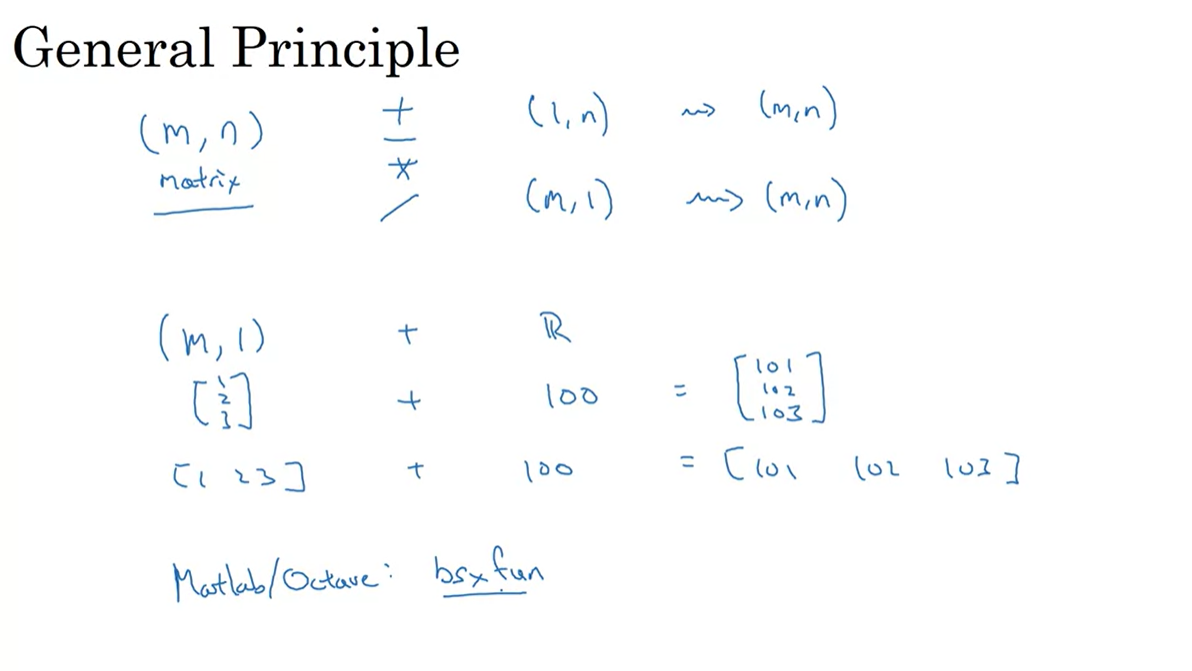 General Principle
(m, n) + (1, n) ⇝ (m,n)
matrix -
*
/ (m, 1) ⇝ (m,n)
(m, 1) + ℝ
[1 2 3] + 100 = [101 102 103]
[1 2 3] + 100 = [101 102 103]
Matlab/Octave: bsxfun